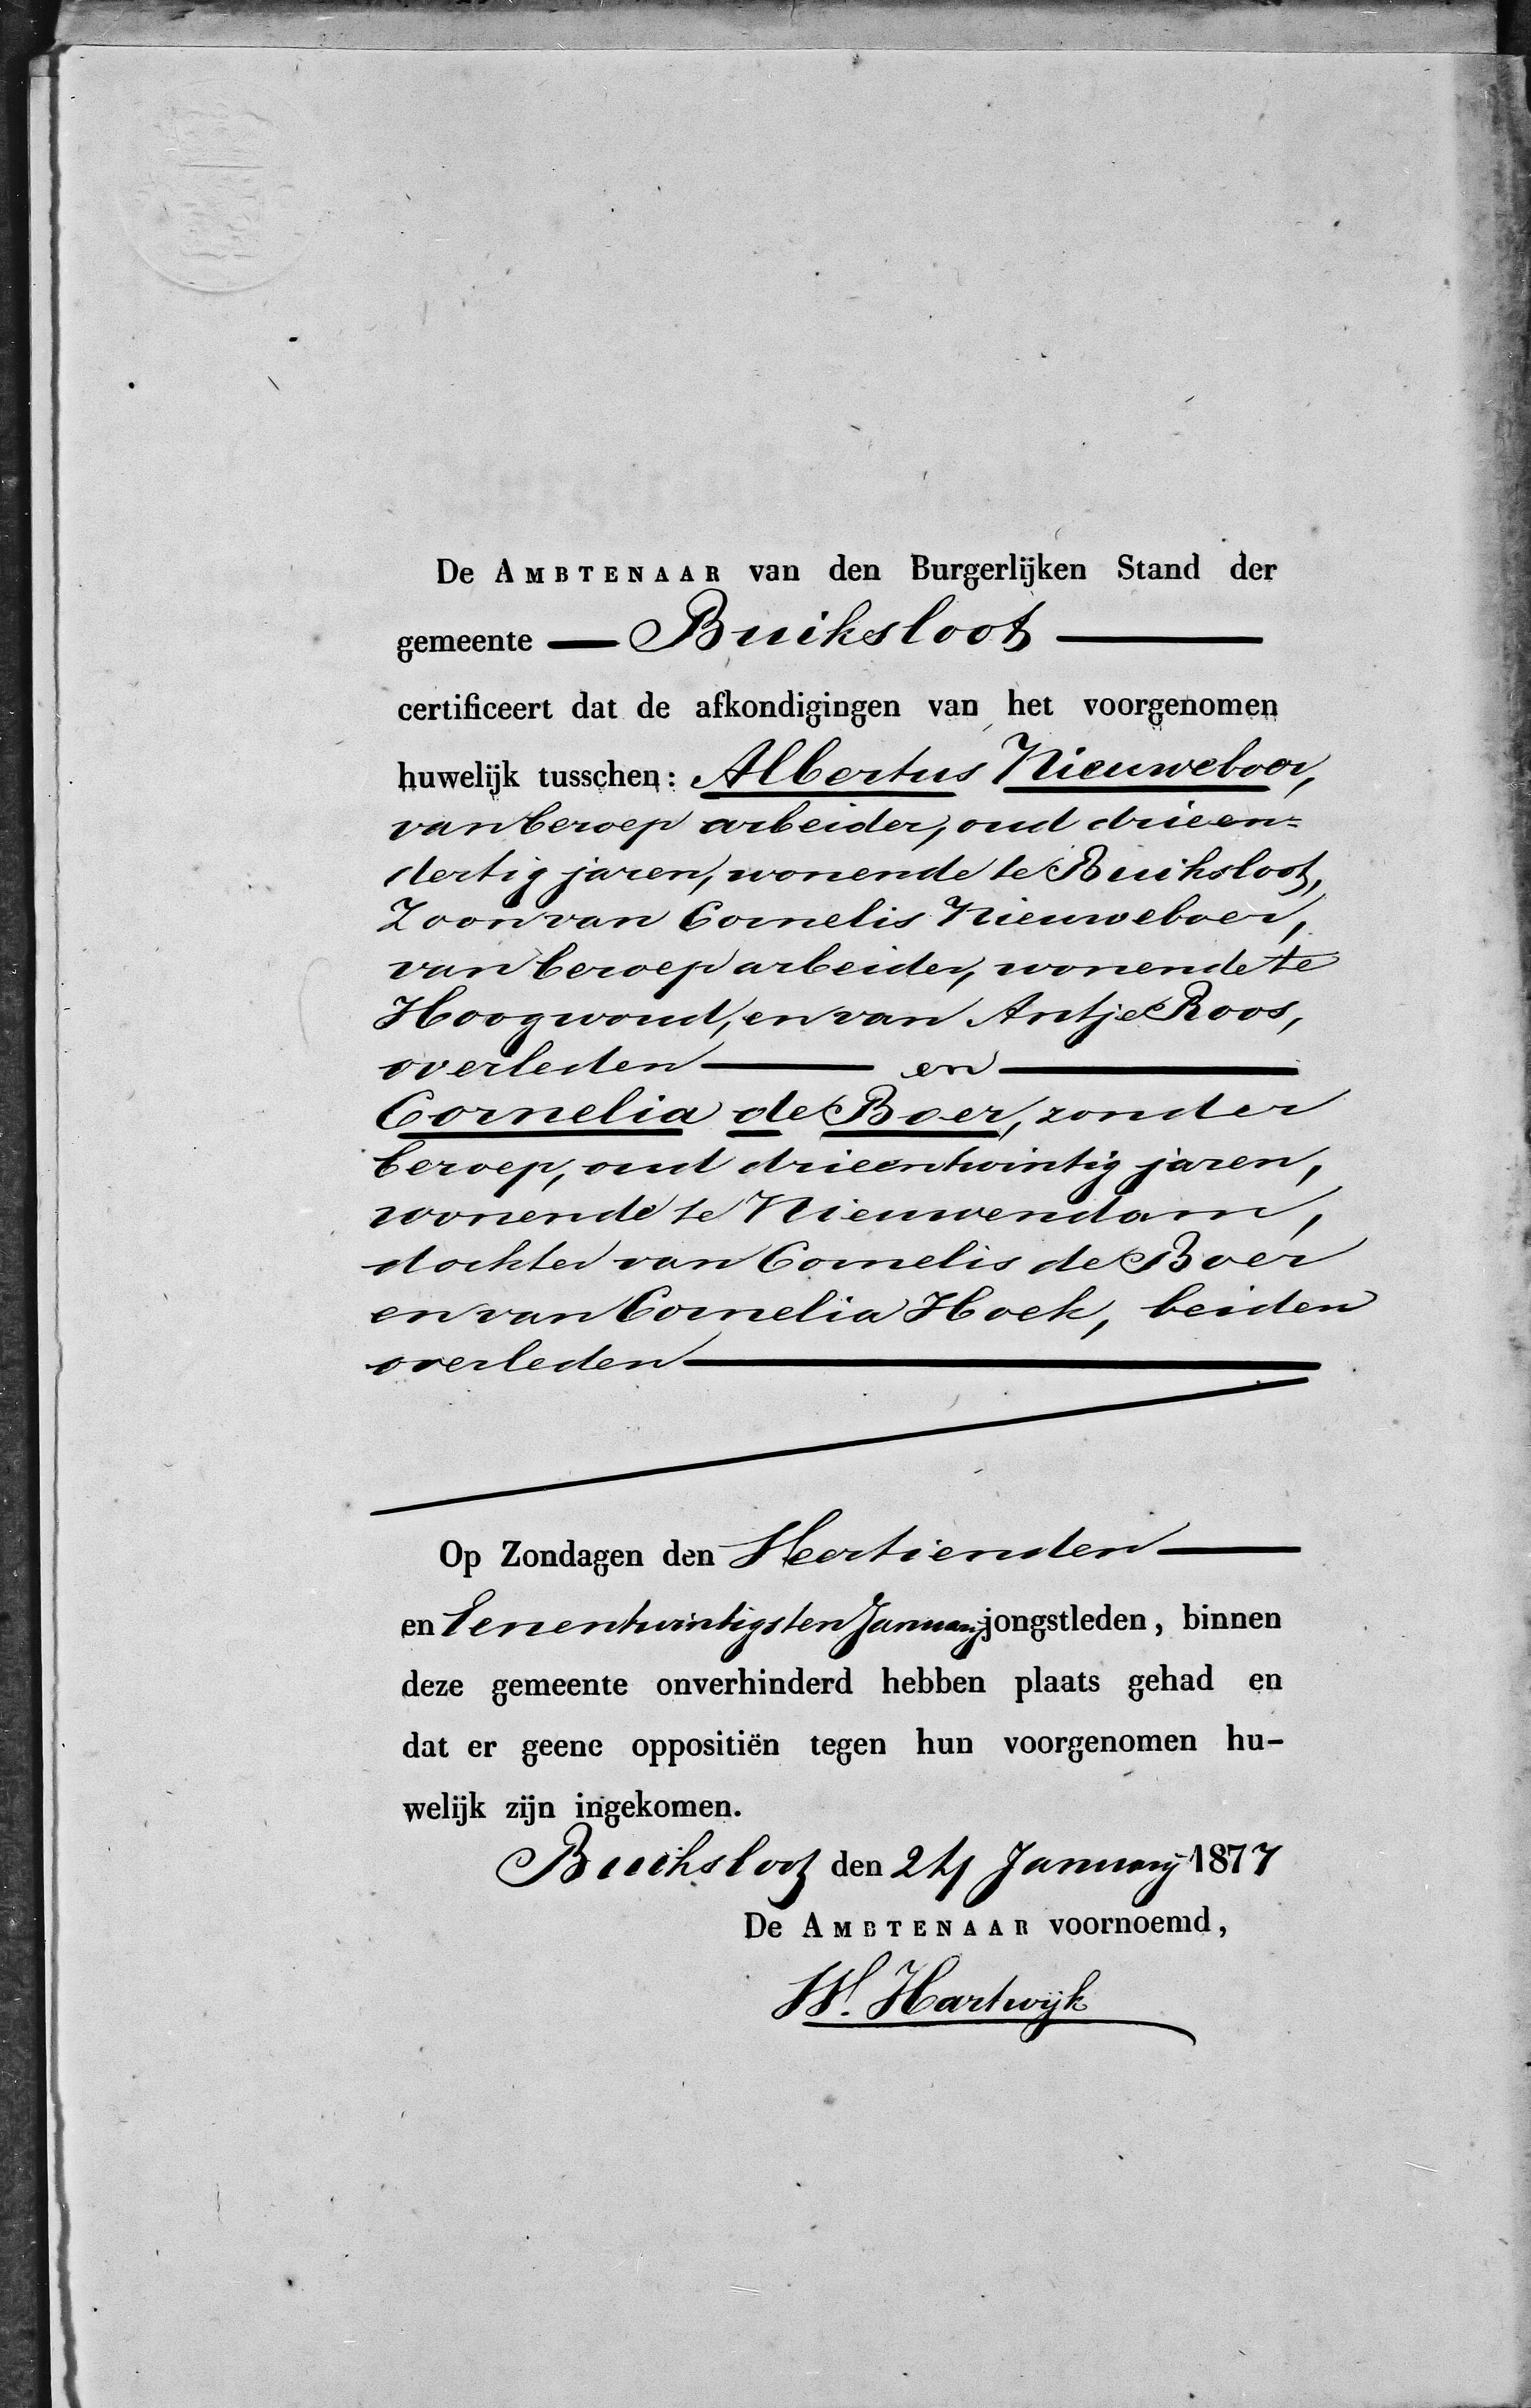 De AMBTENAAR van den Burgerlijken Stand der
gemeente — Buiksloot —
certificeert dat de afkondigingen van het voorgenomen
huwelijk tusschen: Albertus Nieuweboer,
van beroep arbeider, oud drieen=
dertig jaren, wonende te Buiksloot,
Zoon van Cornelis Nieuweboer,
van beroep arbeider, wonende te
Hoogwoud, en van Antje Roos,
overleden — en —
Cornelia de Boer, zonder
beroep, oud drieentwintig jaren,
wonende te Nieuwendam,
dochter van Cornelis de Boer
en van Cornelia Hoek, beiden
overleden —
Op Zondagen den Veertienden —
en Eenentwintigsten Januarij jongstleden, binnen
deze gemeente onverhinderd hebben plaats gehad en
dat er geene oppositiën tegen hun voorgenomen hu-
welijk zijn ingekomen.
Buiksloot den 24 Januarij 1877
De AMBTENAAR voornoemd,
W. Hartwijk